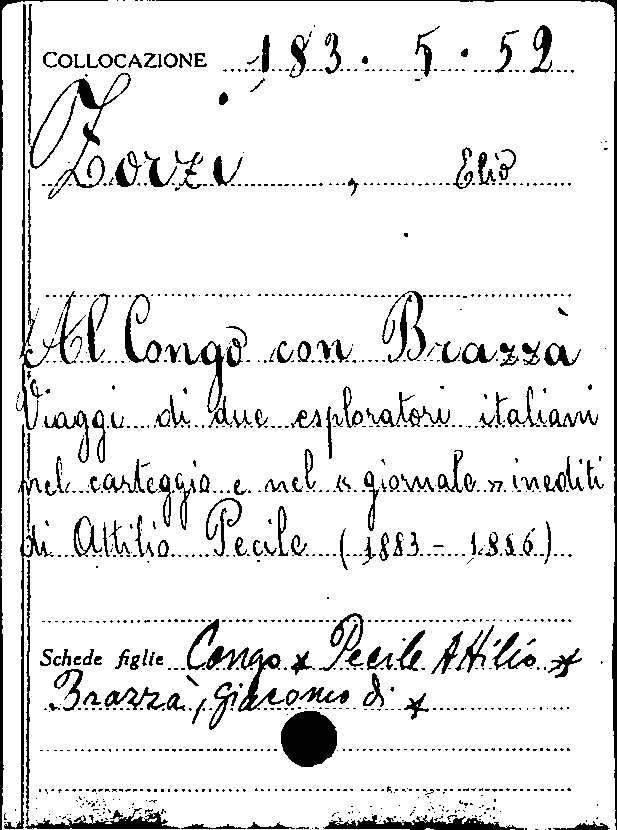 COLLOCAZIONE 183. 5. 52
Zorzi, Elio
Al Congo con Brazzà
Viaggi di due esploratori italiani
nel carteggio e nel « giornale » inediti
di Attilio Pecile (1883 - 1886)
Schede figlie Congo * Pecile Attilio *
Brazzà, Giacomo di *